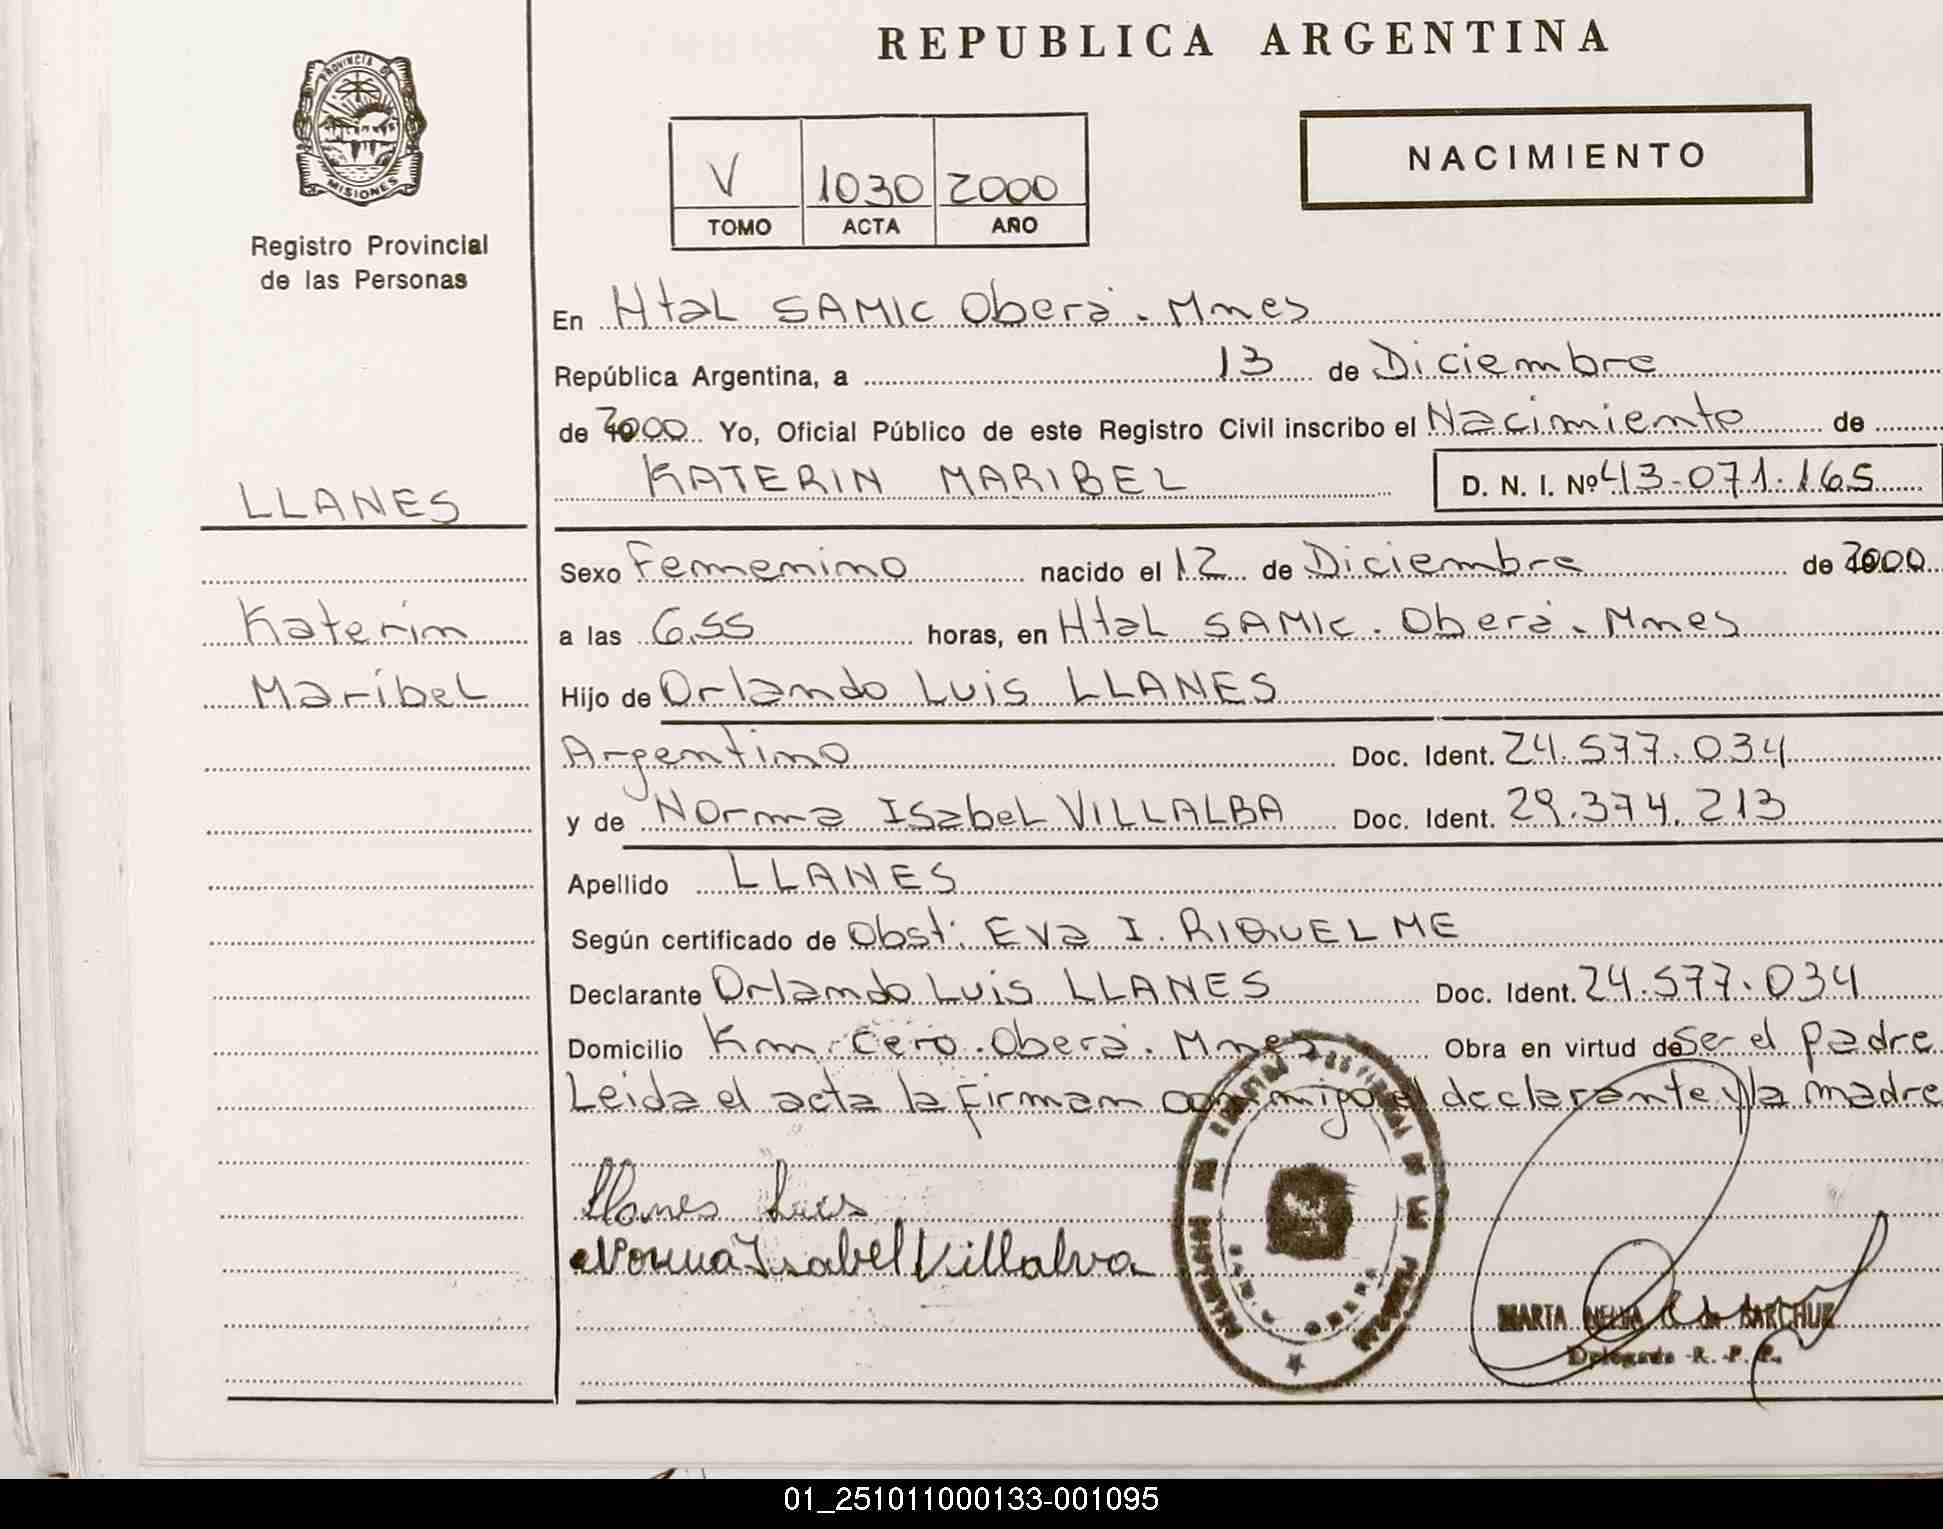 REPUBLICA ARGENTINA
PROVINCIA DE
MISIONES
Registro Provincial
de las Personas
V 1030 2000
TOMO ACTA AÑO
NACIMIENTO
En Htal SAMIC Oberá. Mnes
República Argentina, a 13 de Diciembre
de 2000 Yo, Oficial Público de este Registro Civil inscribo el Nacimiento de
KATERIN MARIBEL D. N. I. Nº 43.071.165
LLANES
Katerin
Maribel
Sexo Femenino nacido el 12 de Diciembre de 2000
a las 6.55 horas, en Htal SAMIC. Oberá. Mnes
Hijo de Orlando Luis LLANES
Argentino Doc. Ident. 24.577.034
y de Norma Isabel VILLALBA Doc. Ident. 29.374.213
Apellido LLANES
Según certificado de Obst: Eva I. RIQUELME
Declarante Orlando Luis LLANES Doc. Ident. 24.577.034
Domicilio Km. Cero. Oberá. Mnes Obra en virtud de Ser el padre
Leida el acta la firman conmigo el declarante y la madre
Llanes Luis
Norma Isabel Villalva
MARTA NELIDA de BARCHUK
Delegada R. P. P.
01_251011000133-001095